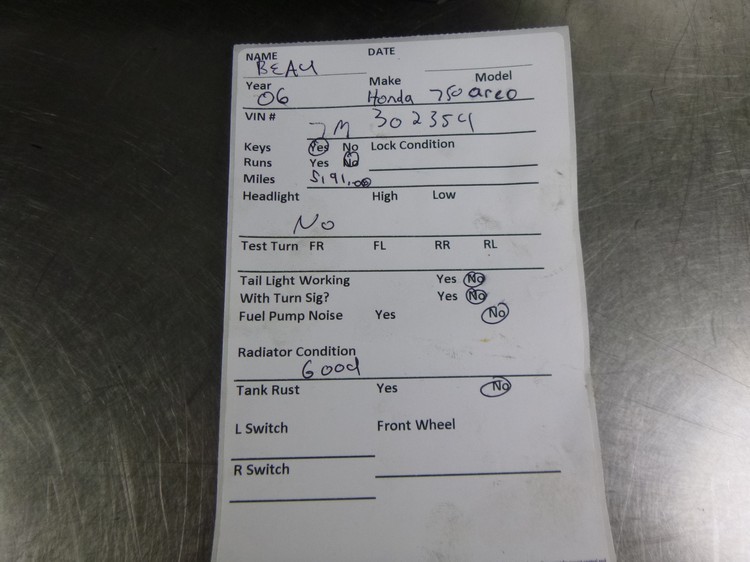 NAME DATE
BEAU
Year Make Model
06 Honda 750 areo
VIN #
7M 302354
Keys Yes No Lock Condition
Runs Yes No
Miles
Headlight High Low
No
Test Turn FR FL RR RL
Tail Light Working Yes No
With Turn Sig? Yes No
Fuel Pump Noise Yes No
Radiator Condition
Good
Tank Rust Yes No
L Switch Front Wheel
R Switch